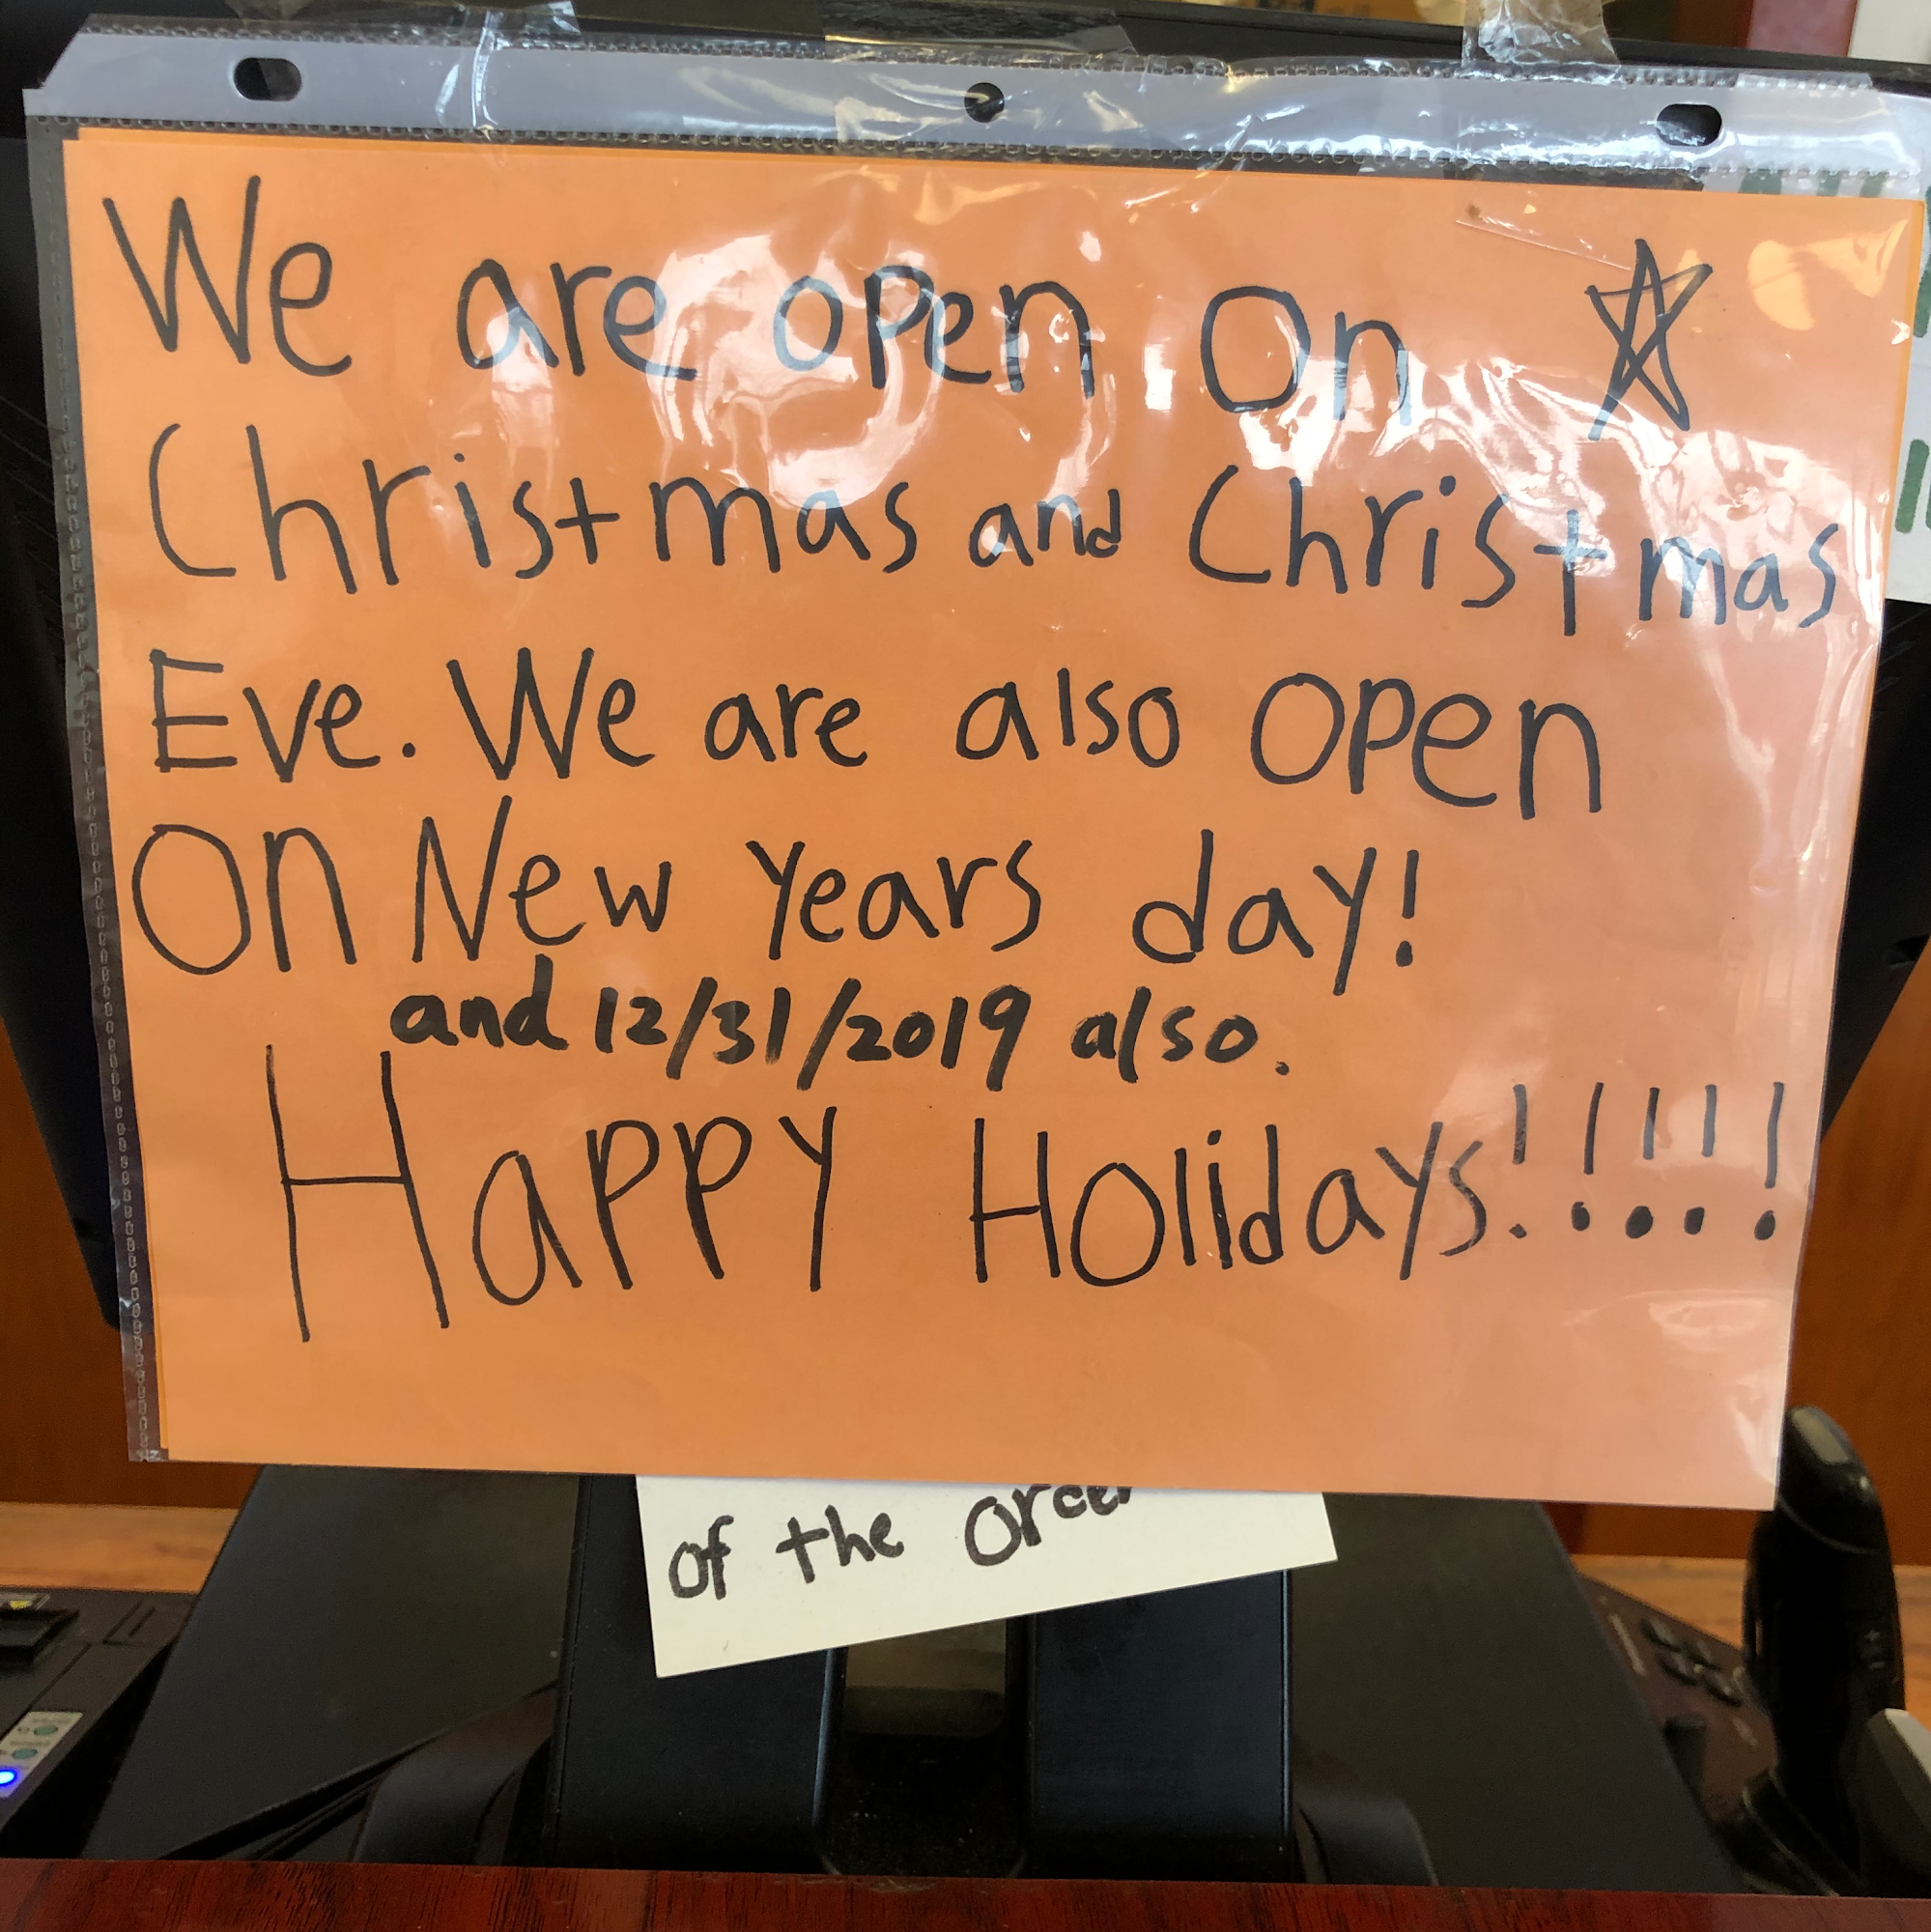 We are open On
Christmas and Christmas
Eve. We are also open
On New years day!
and 12/31/2019 also.
Happy Holidays!!!!!
of the